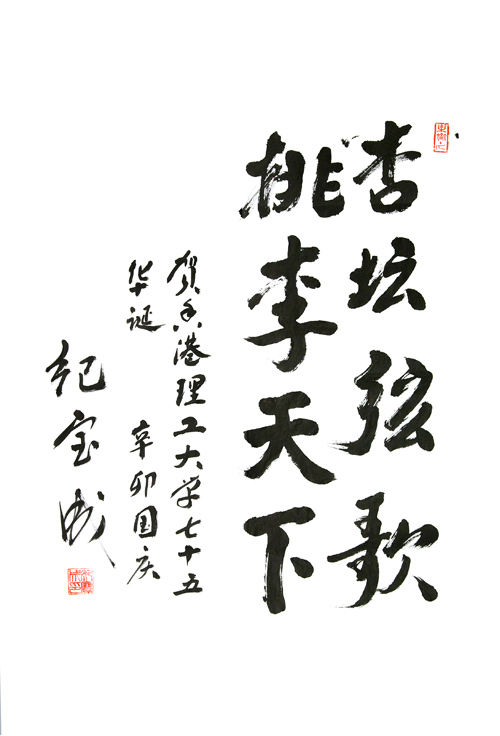 杏坛弦歌
桃李天下
贺香港理工大学七十五
华诞 辛卯国庆
纪宝成